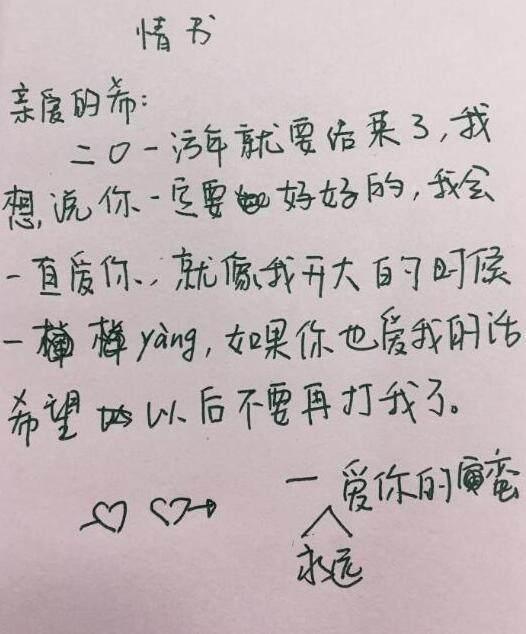 情书
亲爱的希:
二0一 年就要 了,我
想,说你一定要好好的,我会
一直爱你,就像我开大的时候
一 yàng,如果你也爱我的话
希望以后不要再打我了。
一爱你的蛮
永远